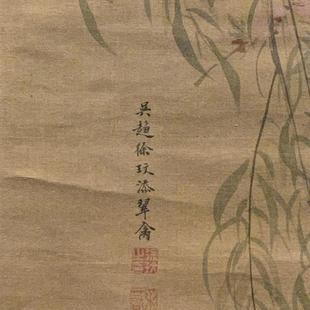 吳趨徐玫添翠禽